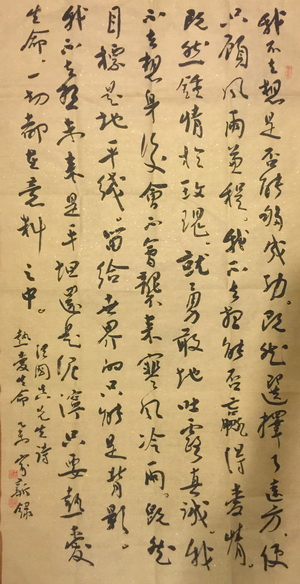 我不去想是否能够成功。既然选择了远方，便
只顾风雨兼程。我不去想能否赢得爱情。
既然钟情于玫瑰，就勇敢地吐露真诚。我
不去想身后会不会袭来寒风冷雨。既然
目标是地平线。留给世界的只能是背影。
我不去想未来是平坦还是泥泞只要热爱
生命，一切都在意料之中。
汪国真先生诗
热爱生命
录